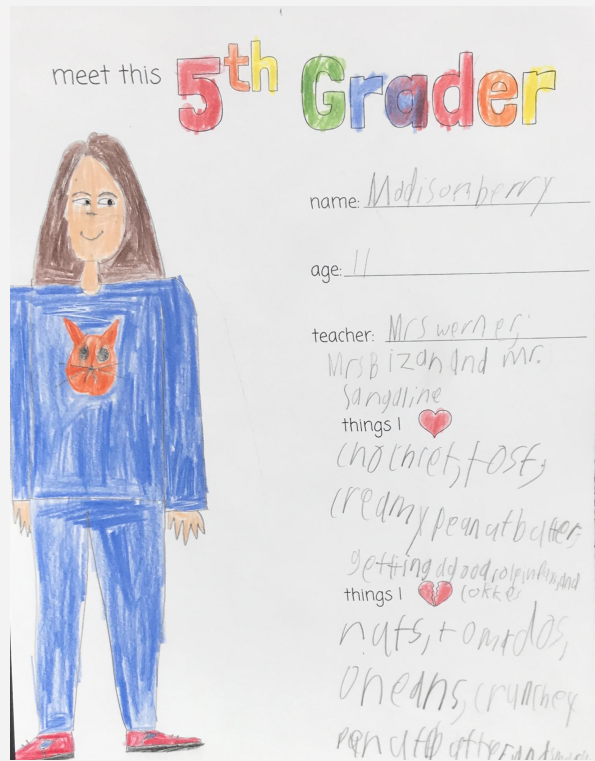 meet this 5th Grader
name: Madisonberry
age: 11
teacher: Mrs werner,
Mrs Bizan and mr.
Sangaline
things I
chochlet, tost,
creamy peanutbutter,
getting a good role in
things I
nuts, tomatos,
oneans, crunchey
peanutbutter and